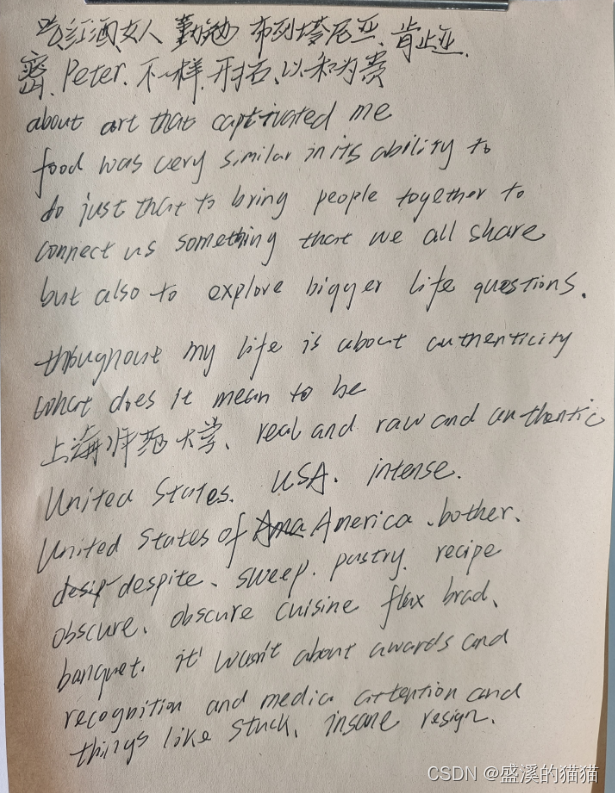 红酒女人 勤勉 布列塔尼亚. 肯止亚.
密. Peter. 不一样. 开拓. 以和为贵
about art that captivated me
food was very similar in its ability to
do just that to bring people together to
connect us something that we all share
but also to explore bigger life questions.
throughout my life is about authenticity
what does it mean to be
上海 大学、real and raw and authentic
United States. USA. intense.
United States of America. bother.
despite. sweep. pastry. recipe
obscure. obscure cuisine flax brad.
banquet. it' wasn't about awards and
recognition and media attention and
things like stuck. insane resign.
CSDN @盛溪的猫猫